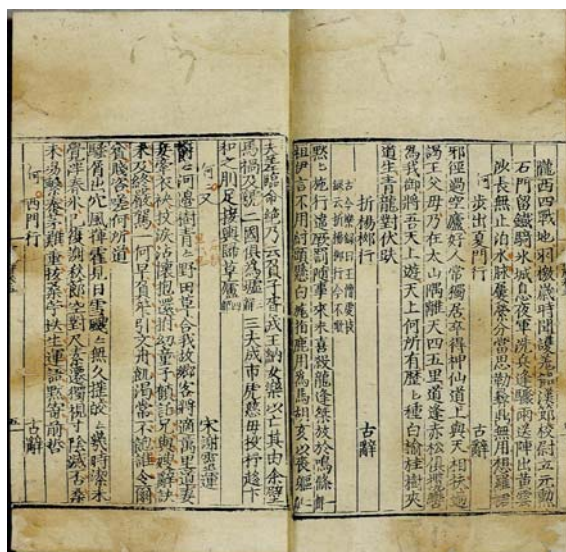 隴西四戰地羽檄歲時聞護羌漢節校尉立元勳
石門留鐵騎冰城息夜軍洗兵逢驟雨送陣出黃雲
沙長無止泊水脉屢縈分當思勒彝鼎無用想羅裙
步出夏門行 古辭
邪徑過空廬好人常獨居卒得神仙道上與天相扶過
謁王父母乃在太山隅離天四五里道逢赤松俱攬轡
為我御將吾天上遊天上何所有歷〻種白榆桂樹夾
道生青龍對伏趺
折楊柳行 古辭
古今樂錄曰王僧虔技
錄云折楊柳行今不歌
黙〻施行違厥罰隨事來末喜殺龍逢桀放於鳴條 一解
祖伊言不用紂頭懸白旄指鹿用為馬胡亥以喪軀 二解
夫差臨命絶乃云負子胥戎王納女樂以亡其由余璧
馬禍及虢二國俱為墟 三解 三夫成市虎慈母投杼趨卞
和之刖足接輿歸草廬 四解
又 宋謝靈運
鬱〻河邊樹青〻野田草合我故鄉客將適萬里道妻
妾牽衣袂抆淚沾懷抱還拊幼童子顧託兄與嫂辭訣
未及終嚴駕一何早負笮引文舟飢渴常不飽誰令爾
貧賤咨嗟何所道
騷屑出穴風揮霍見日雪颼〻無久搖皎〻幾時潔未
覺泮春氷已復謝秋節空對尺素遷獨視寸陰滅否桑
未易繫泰茅難重拔桑茅迭生運語默寄前哲
西門行 古辭